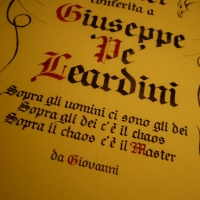 conferita a
Giuseppe
'Pe'
Leardini
Sopra gli uomini ci sono gli dei
Sopra gli dei c'è il chaos
Sopra il chaos c'è il Master
da Giovanni